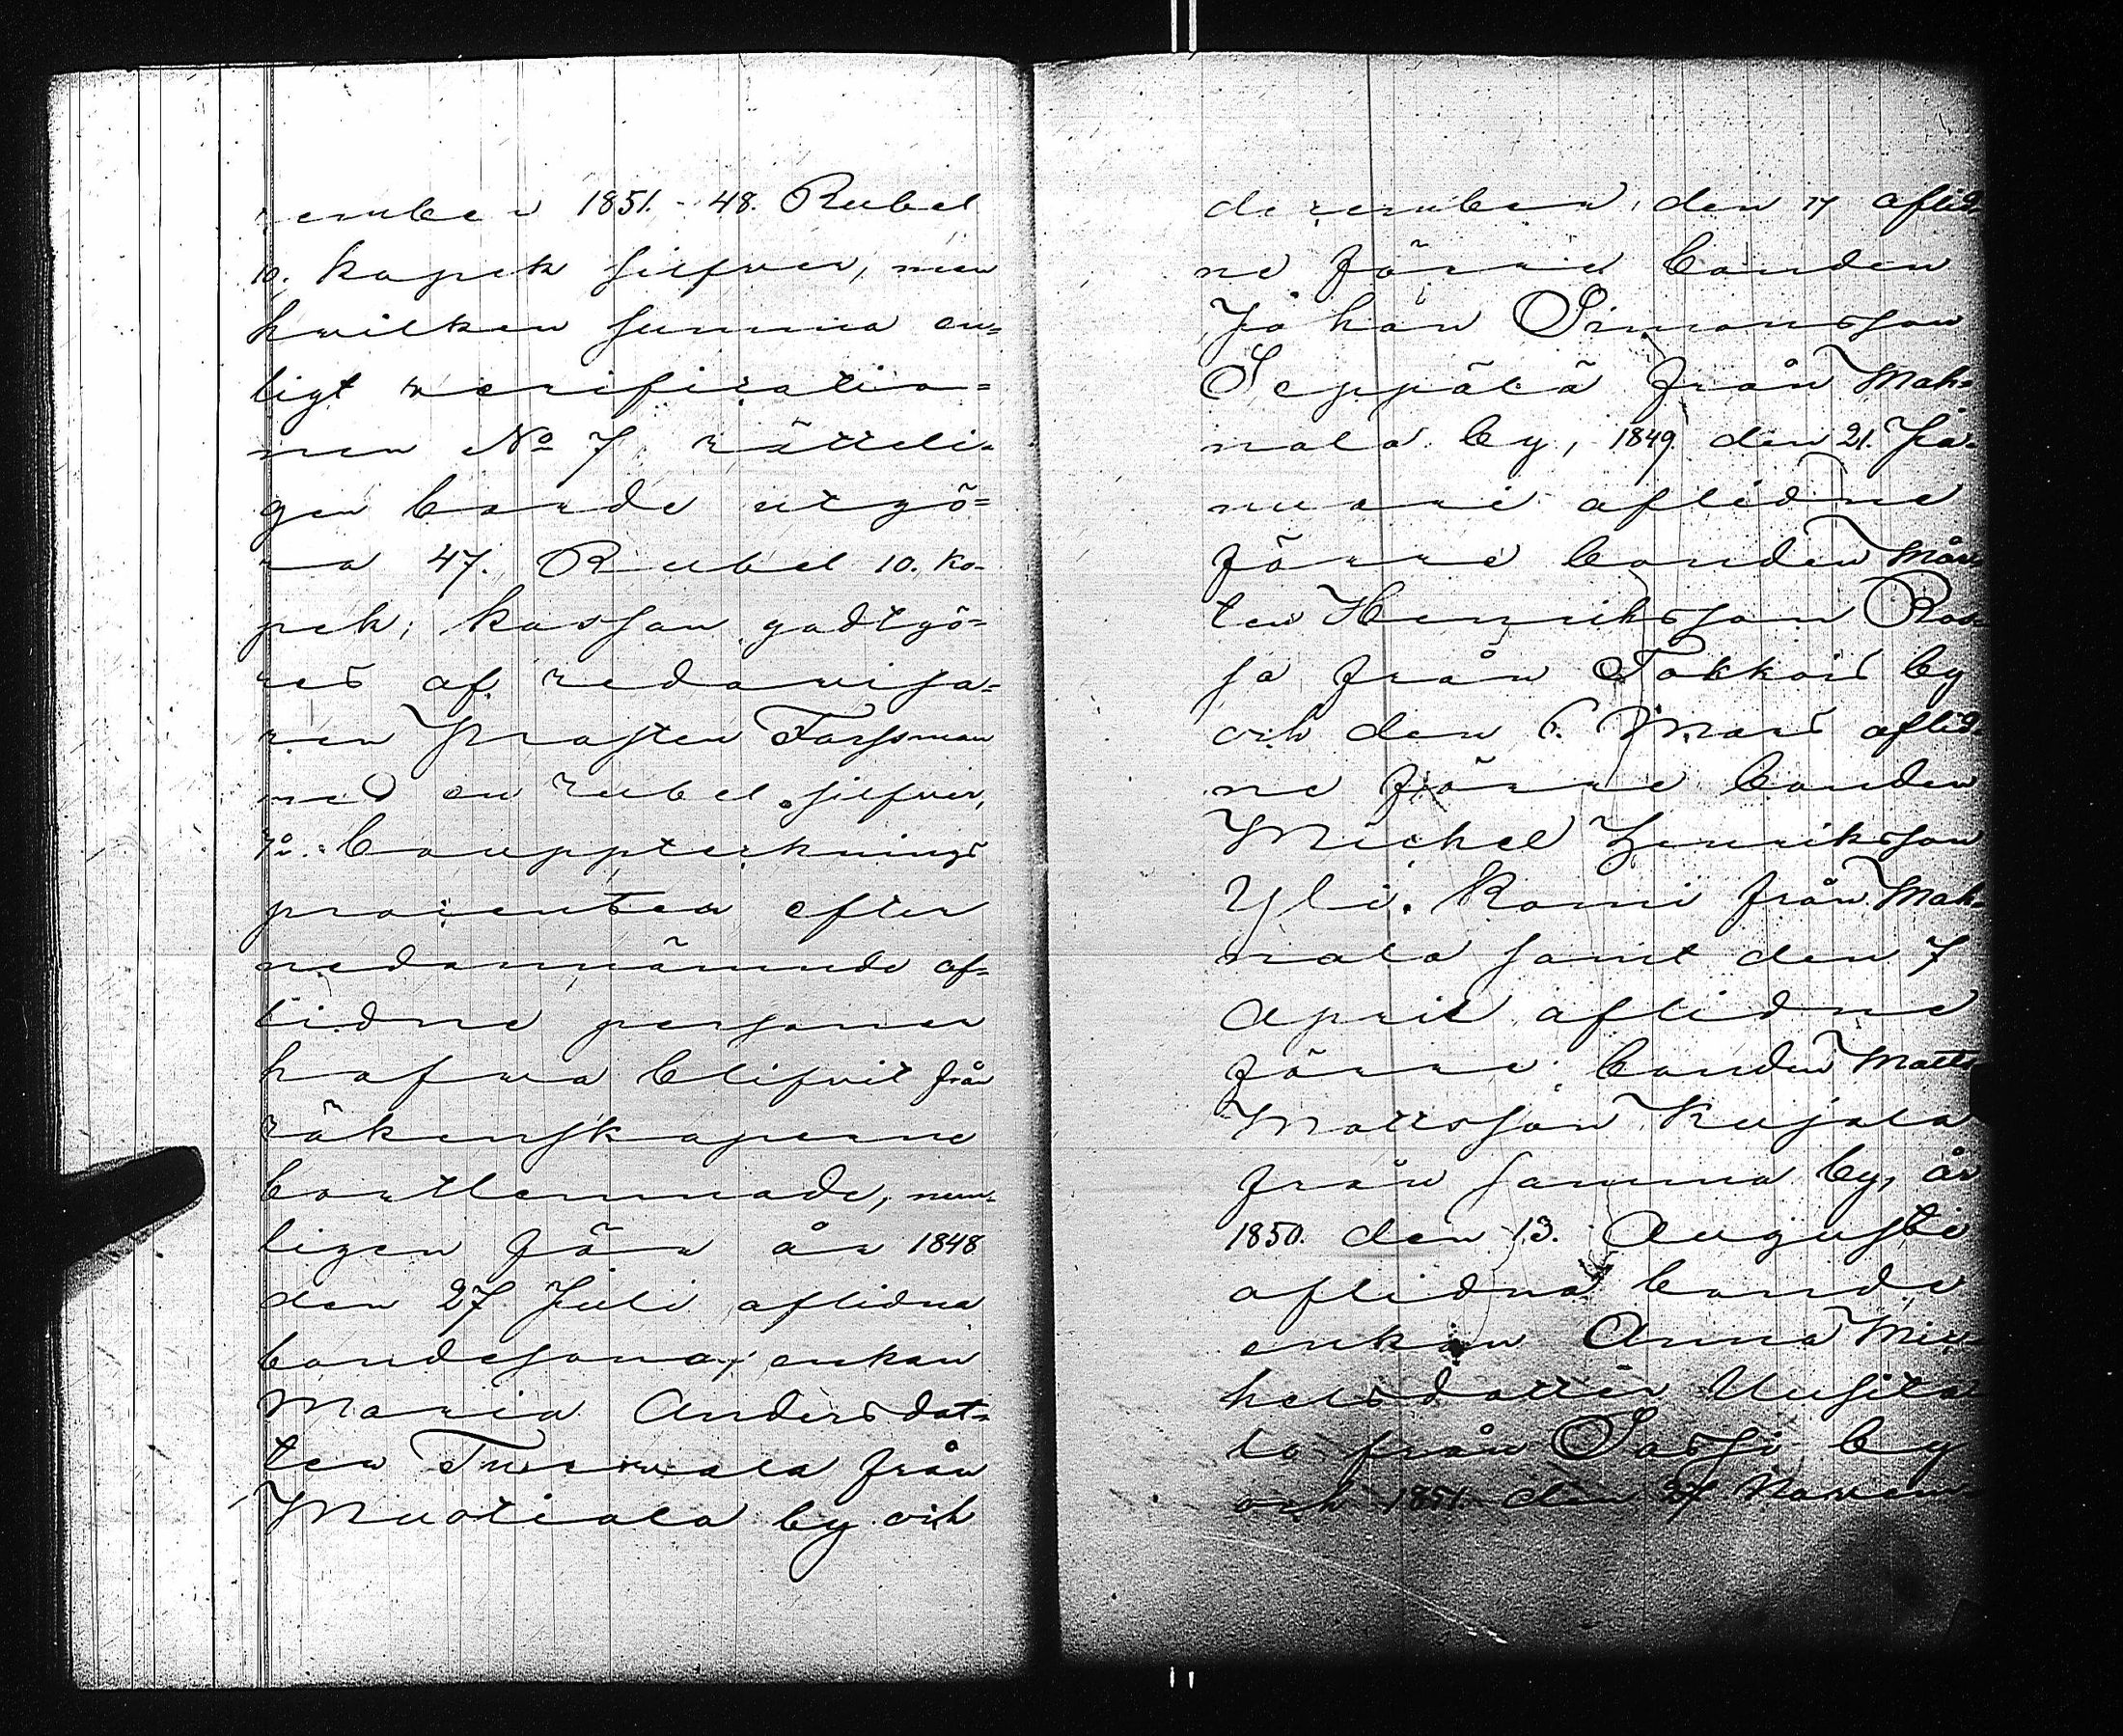 vember 1851. - 48. Rubel
10. kopek silfver, men
hvilken summa en=
ligt verificatio=
nen No 7 rätteli=
gen borde utgö=
ra 47. Rubel 10. ko=
pek; kassan godtgö=
res af redovisa=
ren Prosten Forssman
med en rubel silfver,
7o. Bouppteknings
procenten efter
nedannämnde af=
lidne personer
hafva blifvit från
räkenskaperne
bortlemnade, nem=
ligen för år 1848
den 27 Juli aflidna
bondesona enkan
Maria Andersdot=
ter Turvala från
Muotiala by och
december den 17 aflid=
ne förre bonden
Johan Simonsson
Seppälä från Mah=
nala by, 1849 den 21. Ja=
nuari aflidne
förre bonden Mår
ten Henriksson Roo
sa från Tokkois by
och den 6. Mars aflid=
ne förre bonden
Michel Henriksson
Yli. Romi från Mah=
nala samt den 7
April aflidne
förre bonden Matts
Mattsson Kujala
från samma by, år
1850. den 13. Augusti
aflidna bonde
enkan Anna Mic=
helsdotter Uusita
lo från Sassi by
och 1851 den 27 Novem=